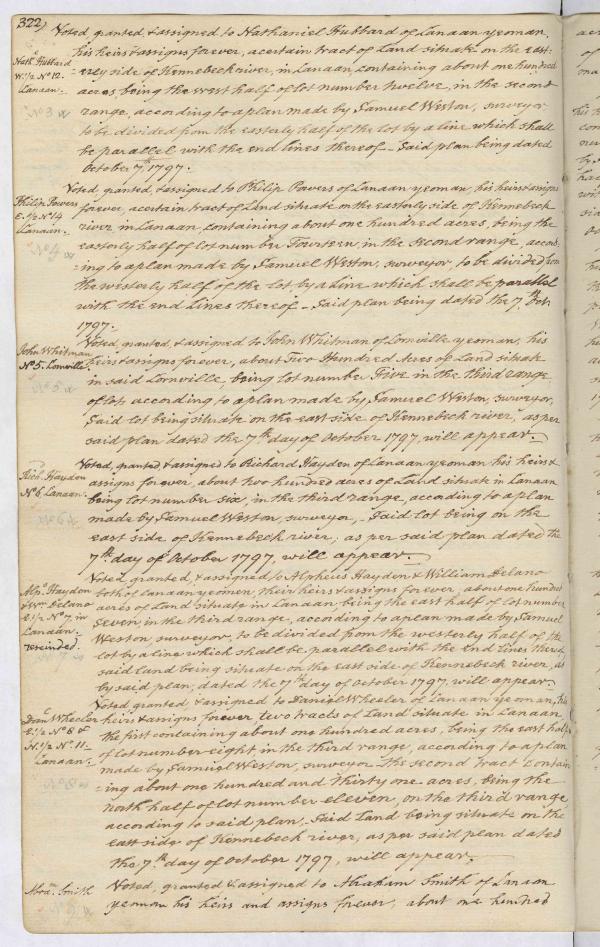 322)
Voted, granted, & assigned to Nathaniel Hubbard of Canaan yeoman,
his heirs & assigns forever, a certain tract of Land situate on the east-
Nath.l Hubbard
erly side of Kennebeck river, in Canaan, containing about one hundred
W. 1/2 No 12.
acres being the west half of lot number twelve, in the second
Canaan.
range, according to a plan made by Samuel Weston, surveyor
to be divided from the easterly half of the lot by a line which shall
be parallel with the end lines thereof - Said plan being dated
October 7th 1797.
Voted, granted, & assigned to Philip Powers of Canaan yeoman, his heirs & assigns
Philip Powers
forever, a certain tract of Land situate on the easterly side of Kennebeck
E. 1/2 No 14
river in Canaan, containing about one hundred acres, being the
Canaan.
easterly half of lot number Fourteen, in the second range, accord-
=ing to a plan made by Samuel Weston, surveyor, to be divided from
the westerly half of the lot by a line which shall be parallel
with the end lines thereof - Said plan being dated the 7th Oct.
1797.
Voted, granted, & assigned to John Whitman of Cornville yeoman, his
John Whitman
heirs & assigns forever, about Two Hundred Acres of Land situate
No 5. Cornville
in said Cornville, being lot number Five in the third range
of lots, according to a plan made by Samuel Weston, surveyor,
Said lot being situate on the east side of Kennebeck river, as per
said plan dated the 7th day of October 1797, will appear.
Voted, granted & assigned to Richard Hayden of Canaan yeoman his heirs &
Rich. Hayden
assigns forever, about two hundred acres of Land situate in Canaan
No 6. Canaan.
being lot number six, in the third range, according to a plan
made by Samuel Weston, surveyor, - Said lot being on the
east side of Kennebeck river, as per said plan dated the
7th day of October 1797, will appear.
Voted, granted, & assigned to Alpheus Hayden & William Delano
Alps. Hayden
both of Canaan yeomen, their heirs & assigns forever, about one hundred
& Wm. Delano
acres of Land situate in Canaan, being the east half of lot number
E. 1/2 No 7, in
Seven in the third range, according to a plan made by Samuel
Canaan.
Weston, surveyor, to be divided from the westerly half of the
rescinded.
lot by a line which shall be parallel with the end lines thereof,
said land being situate on the east side of Kennebeck river, as
by said plan, dated the 7th day of October 1797, will appear.
Voted granted & assigned to Daniel Wheeler of Canaan yeoman, his
Dan. Wheeler
heirs & assigns forever, two tracts of Land situate in Canaan
E. 1/2 No 8 &
the first containing about one hundred acres, being the east half
N. 1/2 No 11.
of lot number eight in the third range, according to a plan
Canaan.
made by Samuel Weston, surveyor the second tract contain
=ing about one hundred and thirty one acres, being the
north half of lot number eleven, on the third range,
according to said plan. Said Land being situate on the
east side of Kennebeck river, as per said plan dated
the 7th day of October 1797, will appear.
Abram. Smith
Voted, granted & assigned to Abraham Smith of Canaan
yeoman his heirs and assigns forever, about one hundred